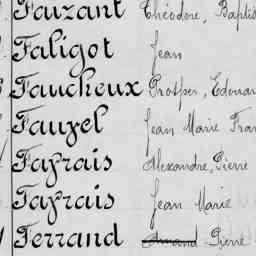 Faizant Théodore, Baptis
Faligot Jean
Faucheux Prosper, Edouar
Fauvel Jean Marie Fran
Fayrais Alexandre, Pierre
Fayrais Jean Marie
Ferrand Armand Pierre